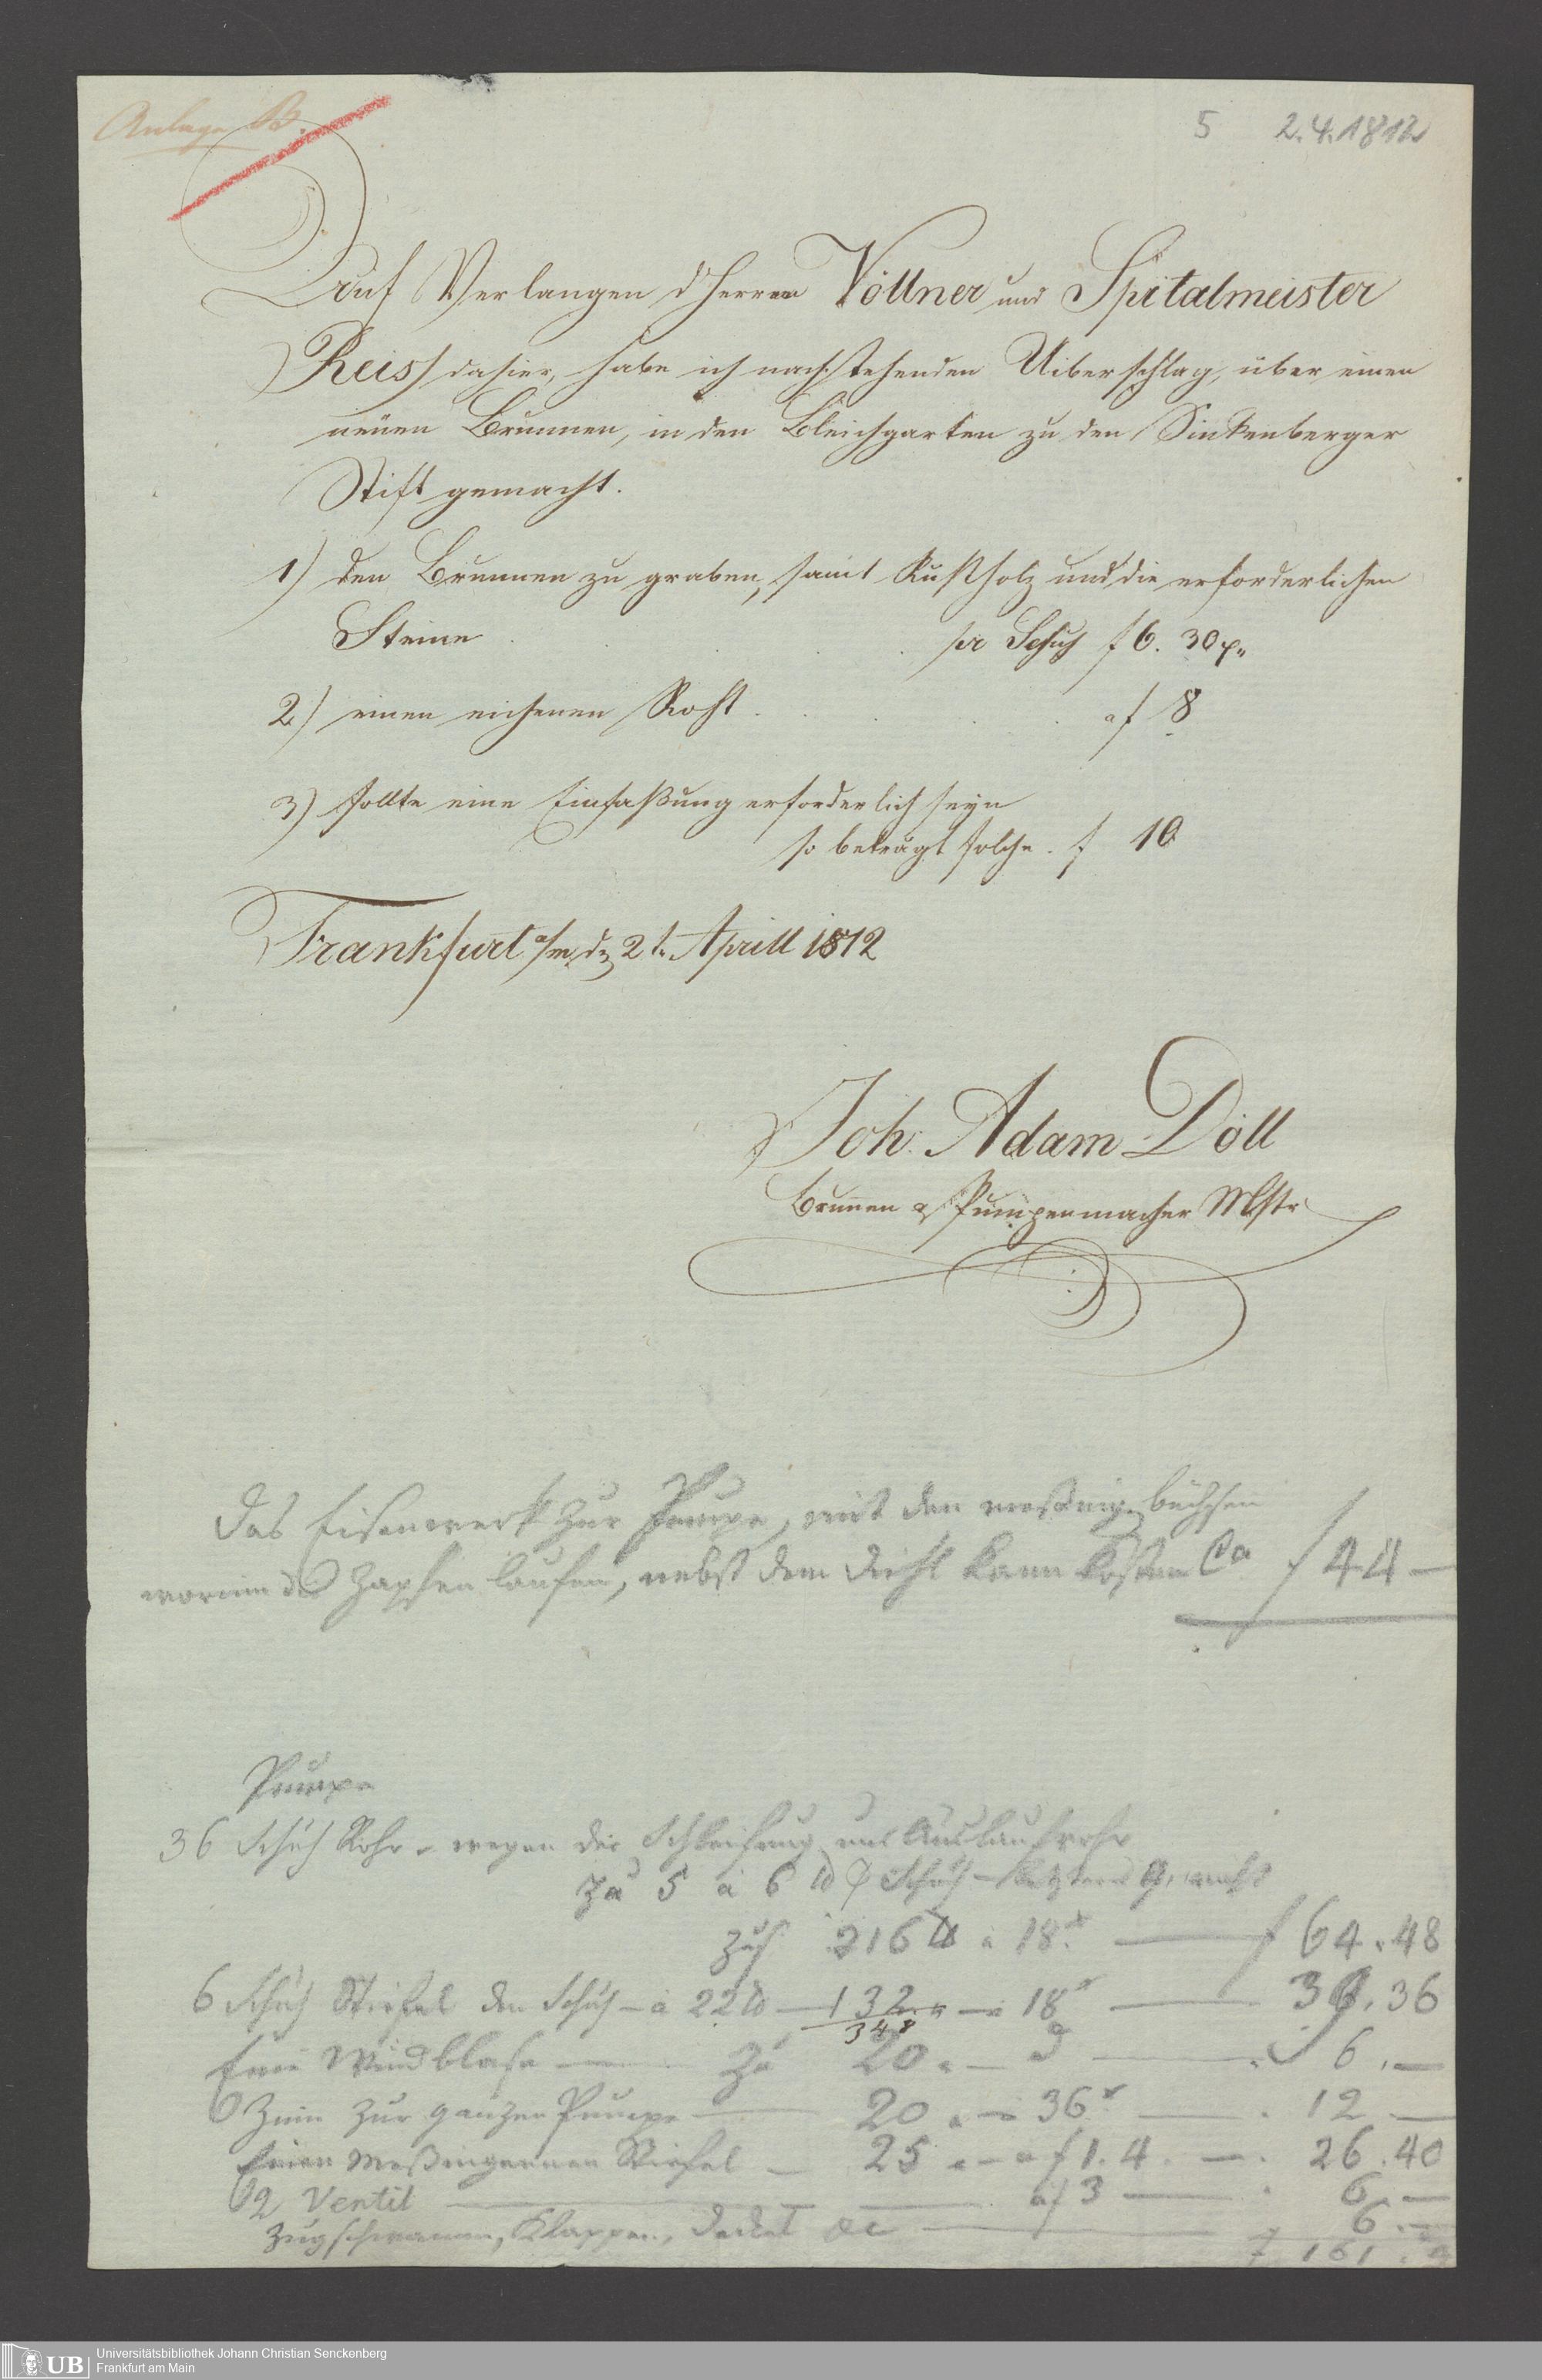 Anlage B.
5 2.4.1812
Auf Verlangen d Herren Vöttner und Spitalmeister
Reis dahier, habe ich nachstehenden Uiberschlag, über einen
neuen Brunnen, in den Bleichgarten zu den Sinkenberger
Stift gemacht.
1) den Brunnen zu graben, samt Rustholz und die erforderlichen
Steine . . . . pr Schuh f 6. 30
2) einen eichenen Rost . . . . a f 8
3) sollte eine Einfaßung erforderlich seyn
so beträgt solche . f 10
Frankfurt a/m, d 2t Aprill 1812
Joh. Adam Döll
Brunen & Pumpenmacher Mstr
Das Eisenwerk zur Pumpe, mit den meßinge büchsen
worinn die Zapfen laufen, nebst dem kann kosten Ca f 44 —
Pumpe
36 Schuh Rohr wegen der und Auslaufrohr
zu 5 a 6 ℔ Schuh
216 ℔ a 18x — f 64.48
6 Schuh Stiefel den Schuh — a 22 ℔ — 132 " — a 18x — 39.36
348
Eine Windblase — zu 20 " — — 6.—
Zinn zur ganzen Pumpe — 20 " — 36x — 12 —
Einen Meßingernen Stiefel — 25 " — a f 1.4. — 26.40
2 Ventil — a f 3 — 6.—
Klappen, Deckel &c — 6.—
f 161.
UB Universitätsbibliothek Johann Christian Senckenberg
Frankfurt am Main